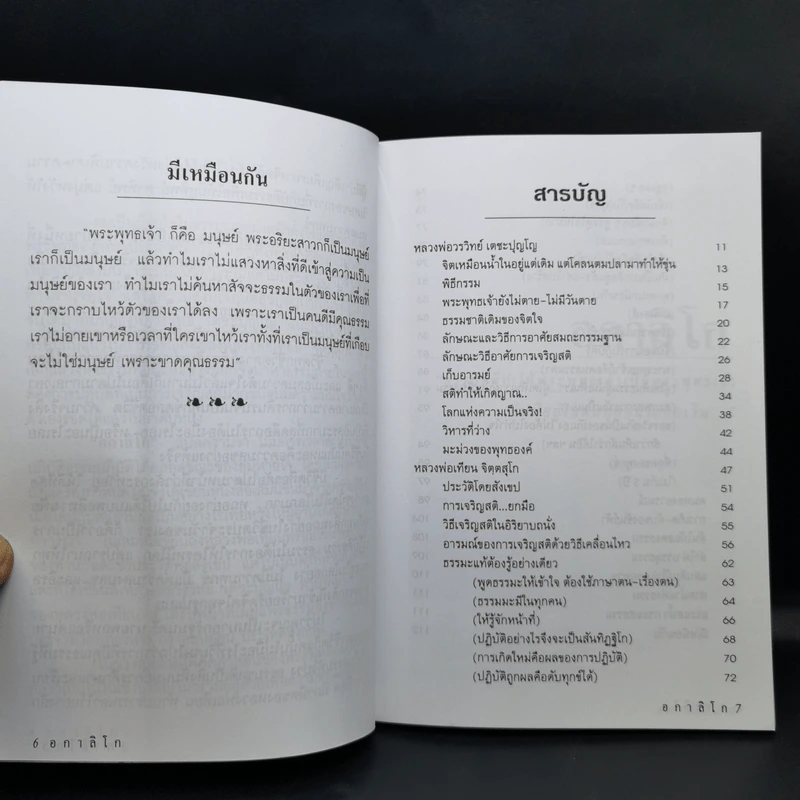 มีเหมือนกัน
"พระพุทธเจ้า ก็คือ มนุษย์ พระอริยะสาวกก็เป็นมนุษย์
เราก็เป็นมนุษย์ แล้วทำไมเราไม่แสวงหาสิ่งที่ดีเข้าสู่ความเป็น
มนุษย์ของเรา ทำไมเราไม่ค้นหาสัจจะธรรมในตัวของเราเพื่อที่
เราจะกราบไหว้ตัวของเราได้ลง เพราะเราเป็นคนดีมีคุณธรรม
เราไม่อายเขาหรือเวลาที่ใครเขาไหว้เราทั้งที่เราเป็นมนุษย์ที่เกือบ
จะไม่ใช่มนุษย์ เพราะขาดคุณธรรม"
6 อกาลิโก
สารบัญ
หลวงพ่อวรวิทย์ เตชะปุญโญ 11
จิตเหมือนน้ำในอยู่แต่เดิม แต่โคลนตมปลามาทำให้ขุ่น 13
พิธีกรรม 15
พระพุทธเจ้ายังไม่ตาย-ไม่มีวันตาย 17
ธรรมชาติเดิมของจิตใจ 20
ลักษณะและวิธีการอาศัยสมถะกรรมฐาน 22
ลักษณะวิธีอาศัยการเจริญสติ 26
เก็บอารมย์ 28
สติทำให้เกิดญาณ.. 34
โลกแห่งความเป็นจริง! 38
วิหารที่ว่าง 42
มะม่วงของพุทธองค์ 44
หลวงพ่อเทียน จิตฺตสุโภ 47
ประวัติโดยสังเขป 51
การเจริญสติ...ยกมือ 54
วิธีเจริญสติในอิริยาบถนั่ง 55
อารมณ์ของการเจริญสติด้วยวิธีเคลื่อนไหว 56
ธรรมะแท้ต้องรู้อย่างเดียว
(พูดธรรมะให้เข้าใจ ต้องใช้ภาษาตน-เรื่องตน) 63
(ธรรมมะมีในทุกคน) 64
(ให้รู้จักหน้าที่) 66
(ปฏิบัติอย่างไรจึงจะเป็นสันทิฏฐิโก) 68
(การเกิดใหม่คือผลของการปฏิบัติ) 70
(ปฏิบัติถูกผลคือดับทุกข์ได้) 72
อกาลิโก 7